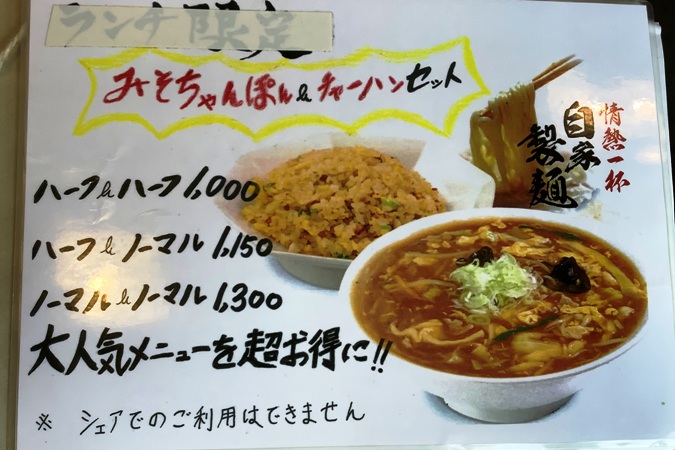 ランチ限定
みそちゃんぽん&チャーハンセット
情熱一杯
自家製麺
ハーフ&ハーフ 1,000
ハーフ&ノーマル 1,150
ノーマル&ノーマル 1,300
大人気メニューを超お得に!!
※ シェアでのご利用はできません